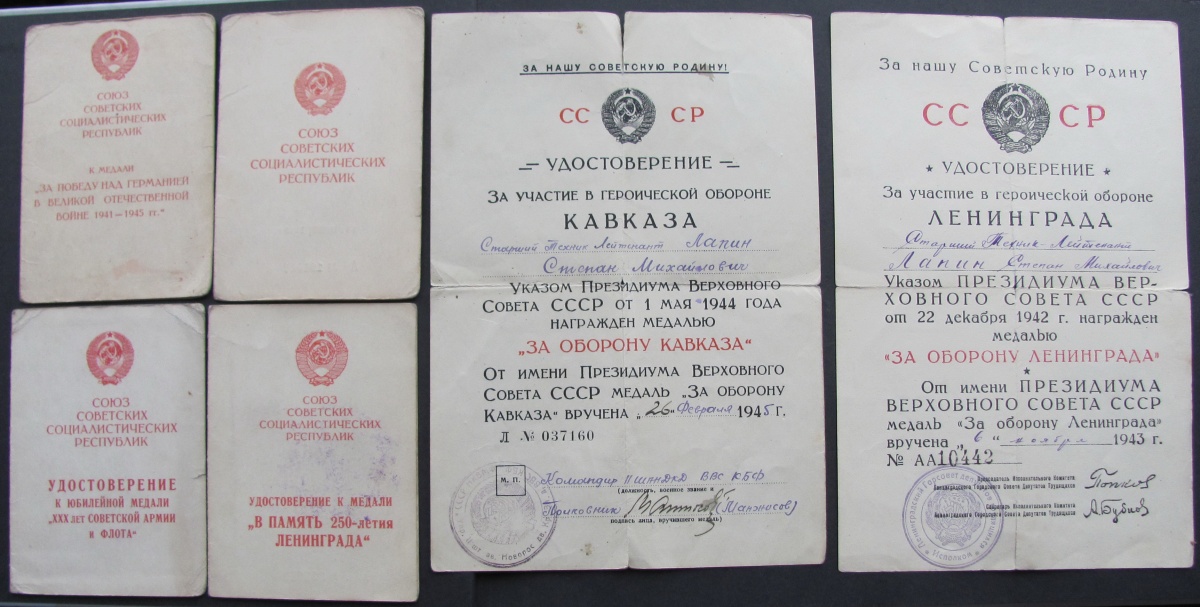 СОЮЗ
СОВЕТСКИХ
СОЦИАЛИСТИЧЕСКИХ
РЕСПУБЛИК
К МЕДАЛИ
„ЗА ПОБЕДУ НАД ГЕРМАНИЕЙ
В ВЕЛИКОЙ ОТЕЧЕСТВЕННОЙ
ВОЙНЕ 1941—1945 гг.“
СОЮЗ
СОВЕТСКИХ
СОЦИАЛИСТИЧЕСКИХ
РЕСПУБЛИК
СОЮЗ
СОВЕТСКИХ
СОЦИАЛИСТИЧЕСКИХ
РЕСПУБЛИК
УДОСТОВЕРЕНИЕ
К ЮБИЛЕЙНОЙ МЕДАЛИ
„ХХХ ЛЕТ СОВЕТСКОЙ АРМИИ
И ФЛОТА“
СОЮЗ
СОВЕТСКИХ
СОЦИАЛИСТИЧЕСКИХ
РЕСПУБЛИК
УДОСТОВЕРЕНИЕ К МЕДАЛИ
„В ПАМЯТЬ 250-летия
ЛЕНИНГРАДА“
ЗА НАШУ СОВЕТСКУЮ РОДИНУ!
СС СР
— УДОСТОВЕРЕНИЕ —
ЗА УЧАСТИЕ В ГЕРОИЧЕСКОЙ ОБОРОНЕ
КАВКАЗА
Старший Техник Лейтенант Лапин
Степан Михайлович
Указом Президиума Верховного
Совета СССР от 1 мая 1944 года
НАГРАЖДЕН МЕДАЛЬЮ
„ЗА ОБОРОНУ КАВКАЗА“
От имени Президиума Верховного
Совета СССР медаль „За оборону
Кавказа“ вручена „26“ февраля 1945 г.
Л № 037160
М. П.
Командир ВВС КБФ
(должность, воинское звание и
Полковник
подпись лица, вручившего медаль)
За нашу Советскую Родину
СС СР
★ УДОСТОВЕРЕНИЕ ★
За участие в героической обороне
ЛЕНИНГРАДА
Старший Техник-Лейтенант
Лапин Степан Михайлович
Указом ПРЕЗИДИУМА ВЕР-
ХОВНОГО СОВЕТА СССР
от 22 декабря 1942 г. награжден
медалью
«ЗА ОБОРОНУ ЛЕНИНГРАДА»
★
От имени ПРЕЗИДИУМА
ВЕРХОВНОГО СОВЕТА СССР
медаль «За оборону Ленинграда»
вручена „6“ ноября 1943 г.
№ АА10442
Председатель Исполнительного Комитета
Ленинградского Городского Совета Депутатов Трудящихся
Попков
Секретарь Исполнительного Комитета
Ленинградского Городского Совета Депутатов Трудящихся
А. Бубнов